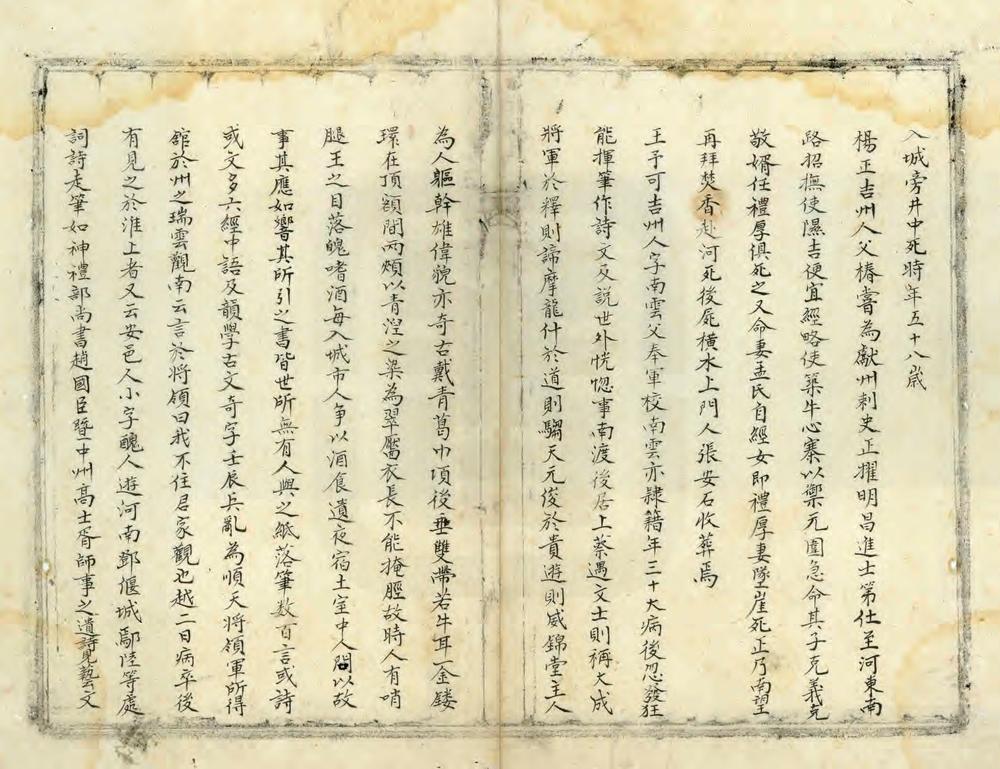 入城旁井中死時年五十八歲
楊正吉州人父椿嘗為獻州刺史正擢明昌進士第仕至河東南
路招撫使隰吉便宜經略使築牛心寨以禦元圍急命其子克義克
敬婿任禮厚俱死之又命妻孟氏自經女即禮厚妻墜崖死正乃南望
再拜焚香赴河死後屍橫水上門人張安石收葬焉
王予可吉州人字南雲父奉軍校南雲亦隸籍年三十大病後忽發狂
能揮筆作詩文及説世外恍惚事南渡後居上蔡遇文士則稱大成
將軍於釋則諦摩龍什於道則騶天元俊於貴遊則威錦堂主人
為人軀幹雄偉貌亦奇古戴青葛巾項後垂雙帶若牛耳一金鏤
環在頂額間兩頰以青涅之染為翠靨衣長不能掩脛故時人有哨
腿王之目落魄嗜酒每入城市人爭以酒食遺夜宿土室中人問以故
事其應如響其所引之書皆世所無有人與之紙落筆数百言或詩
或文多六經中語及韻學古文奇字壬辰兵亂為順天將領軍所得
舘於州之瑞雲觀南云言於將領曰我不住居家觀也越二日病卒後
有見之於淮上者又云安邑人小字醜人遊河南鄧偃城鄢陸等處
詞詩走筆如神禮部尚書趙國臣暨中州高士胥師事之遺詩見藝文